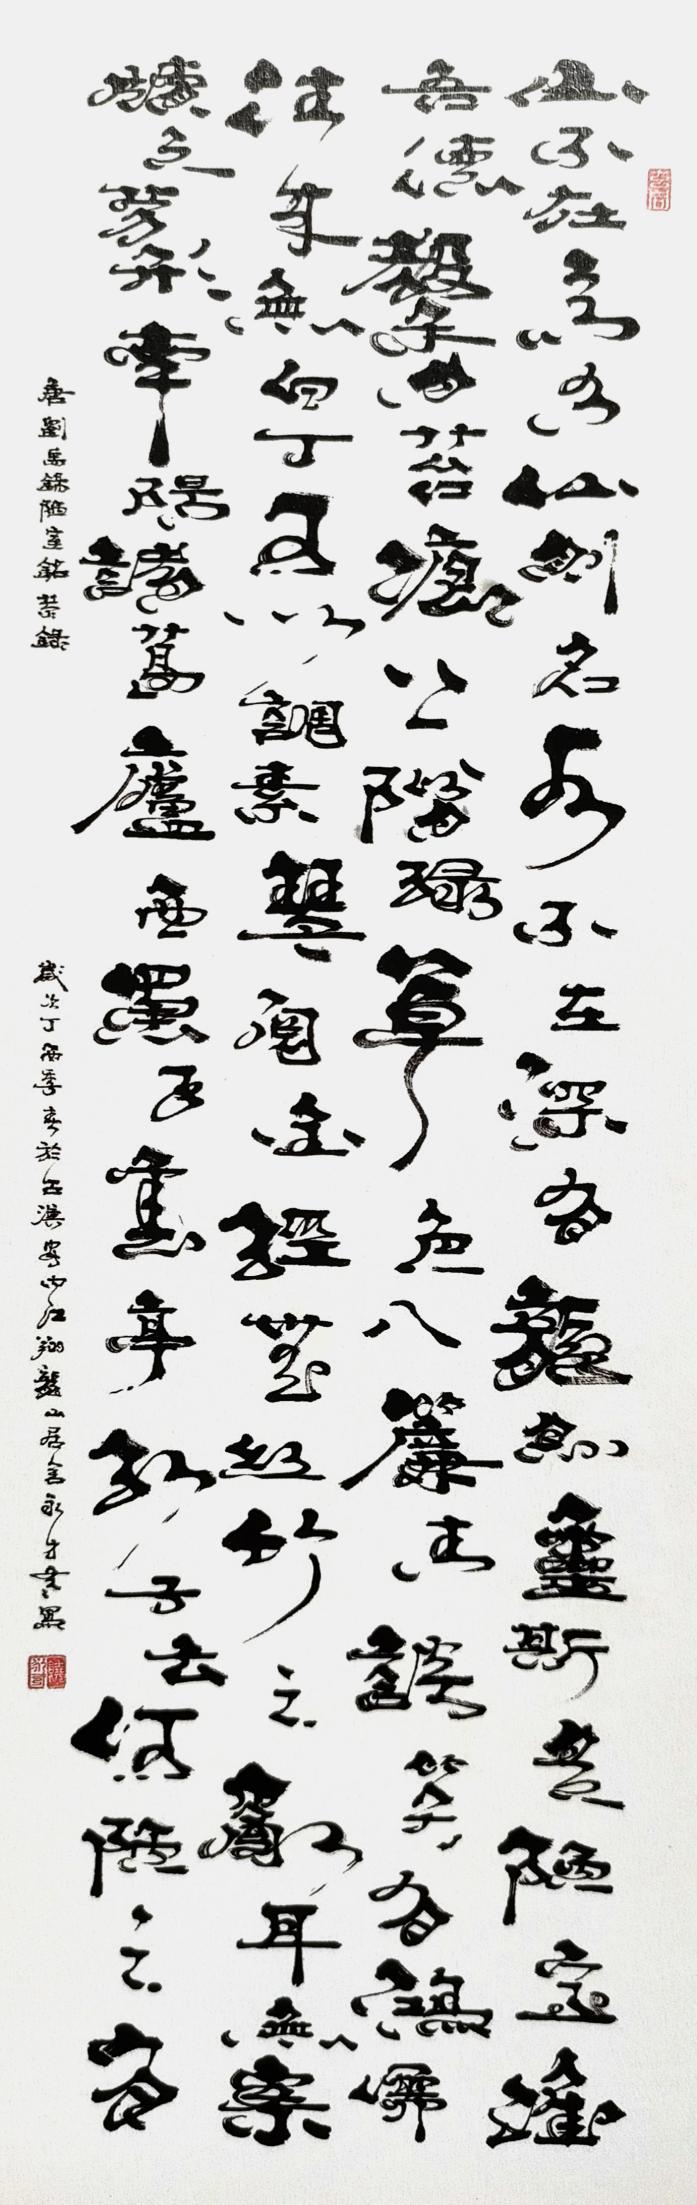 山不在高有仙則名水不在深有龍則靈斯是陋室唯
吾德馨苔痕上階綠草色入簾青談笑有鴻儒
往來無白丁可以調素琴閱金經無絲竹之亂耳無案
牘之勞形南陽諸葛廬西蜀子雲亭孔子云何陋之有
唐劉禹錫陋室銘錄
歲次丁酉季春於古漢安內江翔龍山居舍永才書